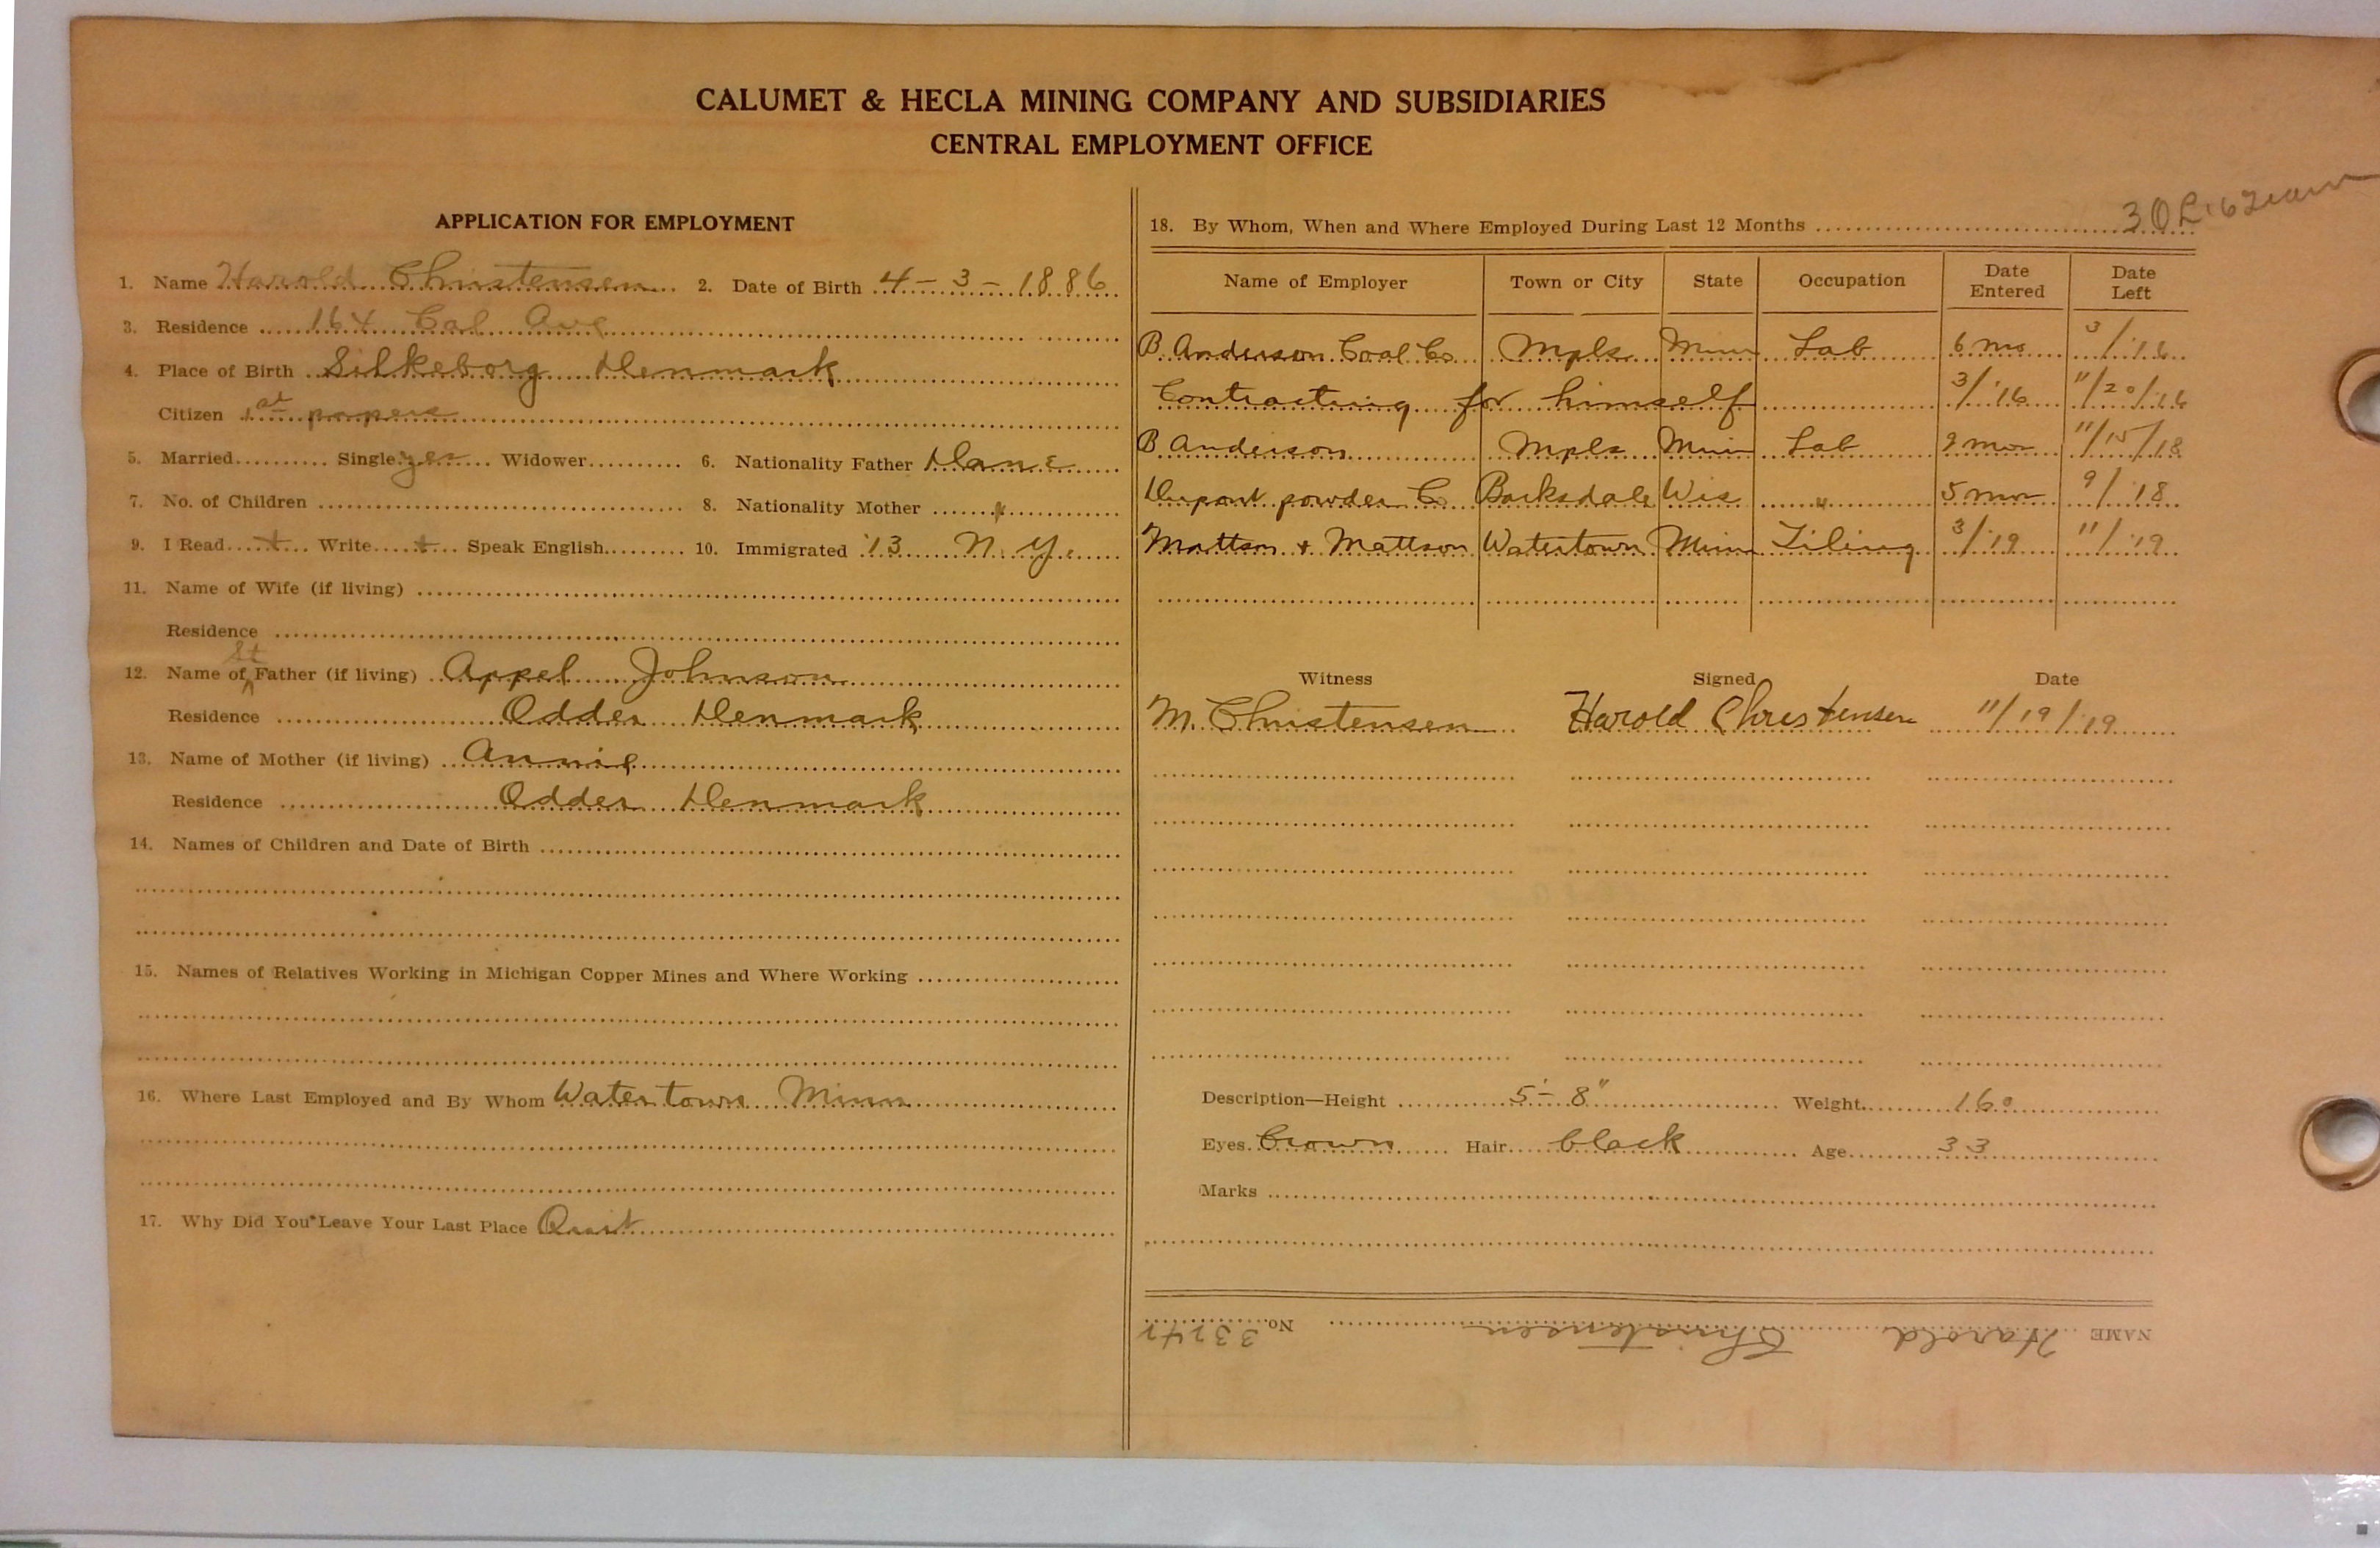 CALUMET & HECLA MINING COMPANY AND SUBSIDIARIES
CENTRAL EMPLOYMENT OFFICE
APPLICATION FOR EMPLOYMENT
1. Name Harold Christensen 2. Date of Birth 4 - 3 - 1886
3. Residence 164 Cal Ave
4. Place of Birth Silkeborg Denmark
Citizen 1st papers
5. Married Single yes Widower 6. Nationality Father Dane
7. No. of Children 8. Nationality Mother "
9. I Read + Write + Speak English 10. Immigrated '13 N. Y.
11. Name of Wife (if living)
Residence
12. Name of St Father (if living) Appel Johnson
Residence Odder Denmark
13. Name of Mother (if living) Annie
Residence Odder Denmark
14. Names of Children and Date of Birth
15. Names of Relatives Working in Michigan Copper Mines and Where Working
16. Where Last Employed and By Whom Watertown Minn
17. Why Did You Leave Your Last Place Quit
18. By Whom, When and Where Employed During Last 12 Months
Name of Employer Town or City State Occupation Date Entered Date Left
B Anderson Coal Co Mpls Minn Lab 6 mo 3/'16
Contracting for himself 3/'16 11/20/'16
B Anderson Mpls Minn Lab 11/15/18
Dupont powder Co Barksdale Wis " 5 mos 9/'18
Mattson + Mattson Watertown Minn Tiling 3/'19 11/'19
Witness Signed Date
M. Christensen Harold Christensen 11/19/'19
Description—Height 5'- 8" Weight 160
Eyes Brown Hair black Age 33
Marks
NAME Harold Christensen No.